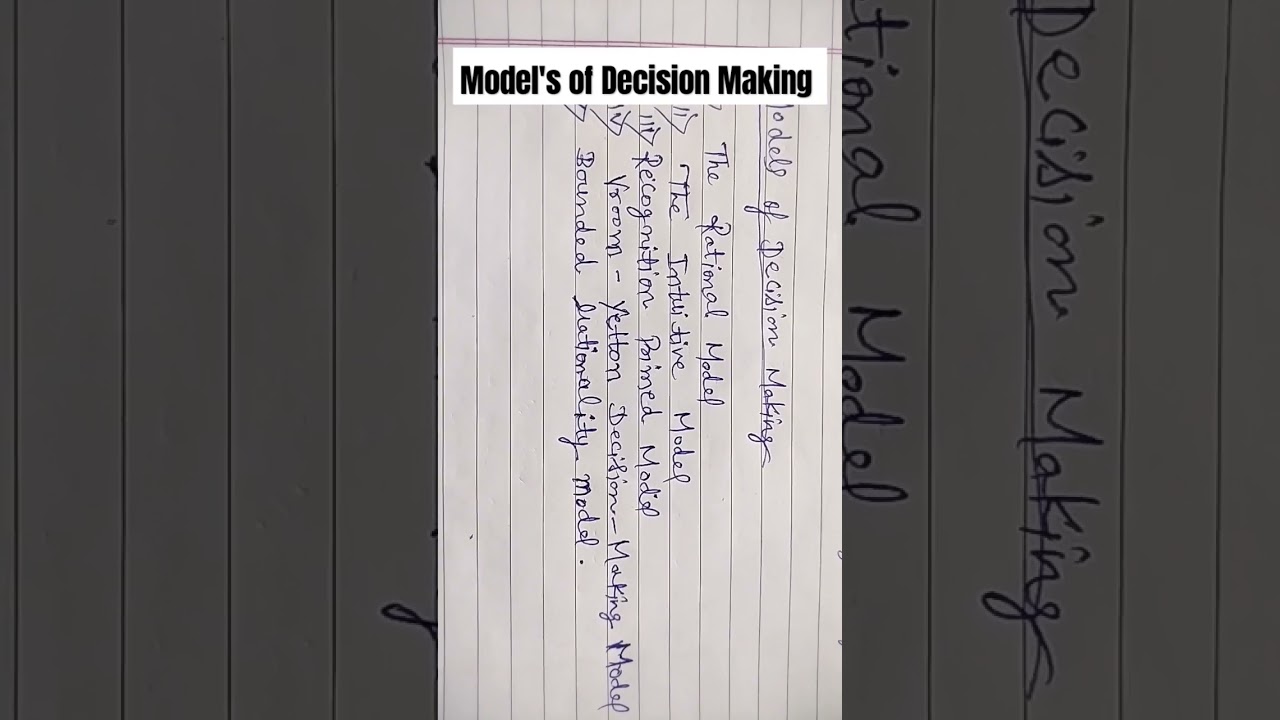 Model's of Decision Making
Models of Decision Making
The Rational Model
ii) The Intuitive Model
iii) Recognition Primed Model
iv) Vroom - Yetton Decision - Making Model
Bounded Rationality Model.
Decision Making
tional Model